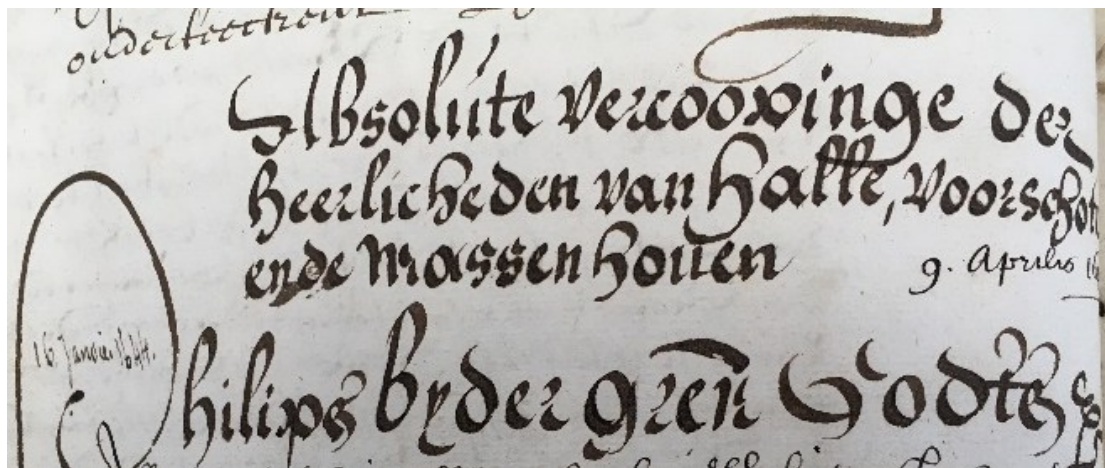 onderteeckent
Absolúte vercooopinge der
heerlicheden van Halle, Voorschot
ende Massenhouen
9. Aprilis 16
16. Januoie. 1644.
Philips by der gren Godts